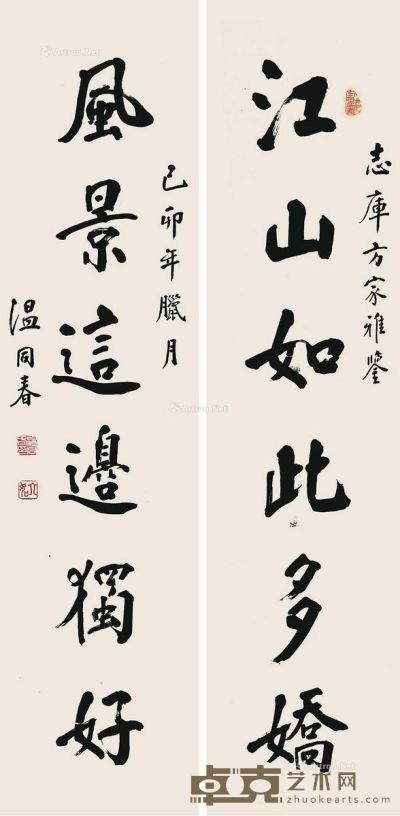 志庫方家雅鑒
江山如此多嬌
風景這邊獨好
己卯年臘月
温同春
卓克艺术网
zhuokearts.com
Artron.Net